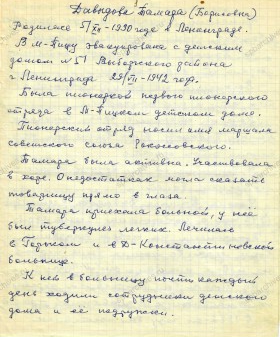 Давыдова Тамара (Борисовна)
Родилась 5/XII-1930 года в Ленинграде.
В М-Пицу эвакуирована с детским
домом №51 Выборгского района
г. Ленинграда 29/VII-1942 года.
Была пионеркой первого пионерского
отряда в М-Пицком детском доме.
Пионерский отряд носил имя маршала
советского союза Рокоссовского.
Тамара была активна. Участвовала
в хоре. О недостатках могла сказать
товарищу прямо в глаза.
Тамара приехала больной, у неё
был туберкулез легких. Лечилась
в Горьком и в Д-Константиновской
больнице.
К ней в больницу почти каждый
день ходили сотрудники детского
дома и её подружки.